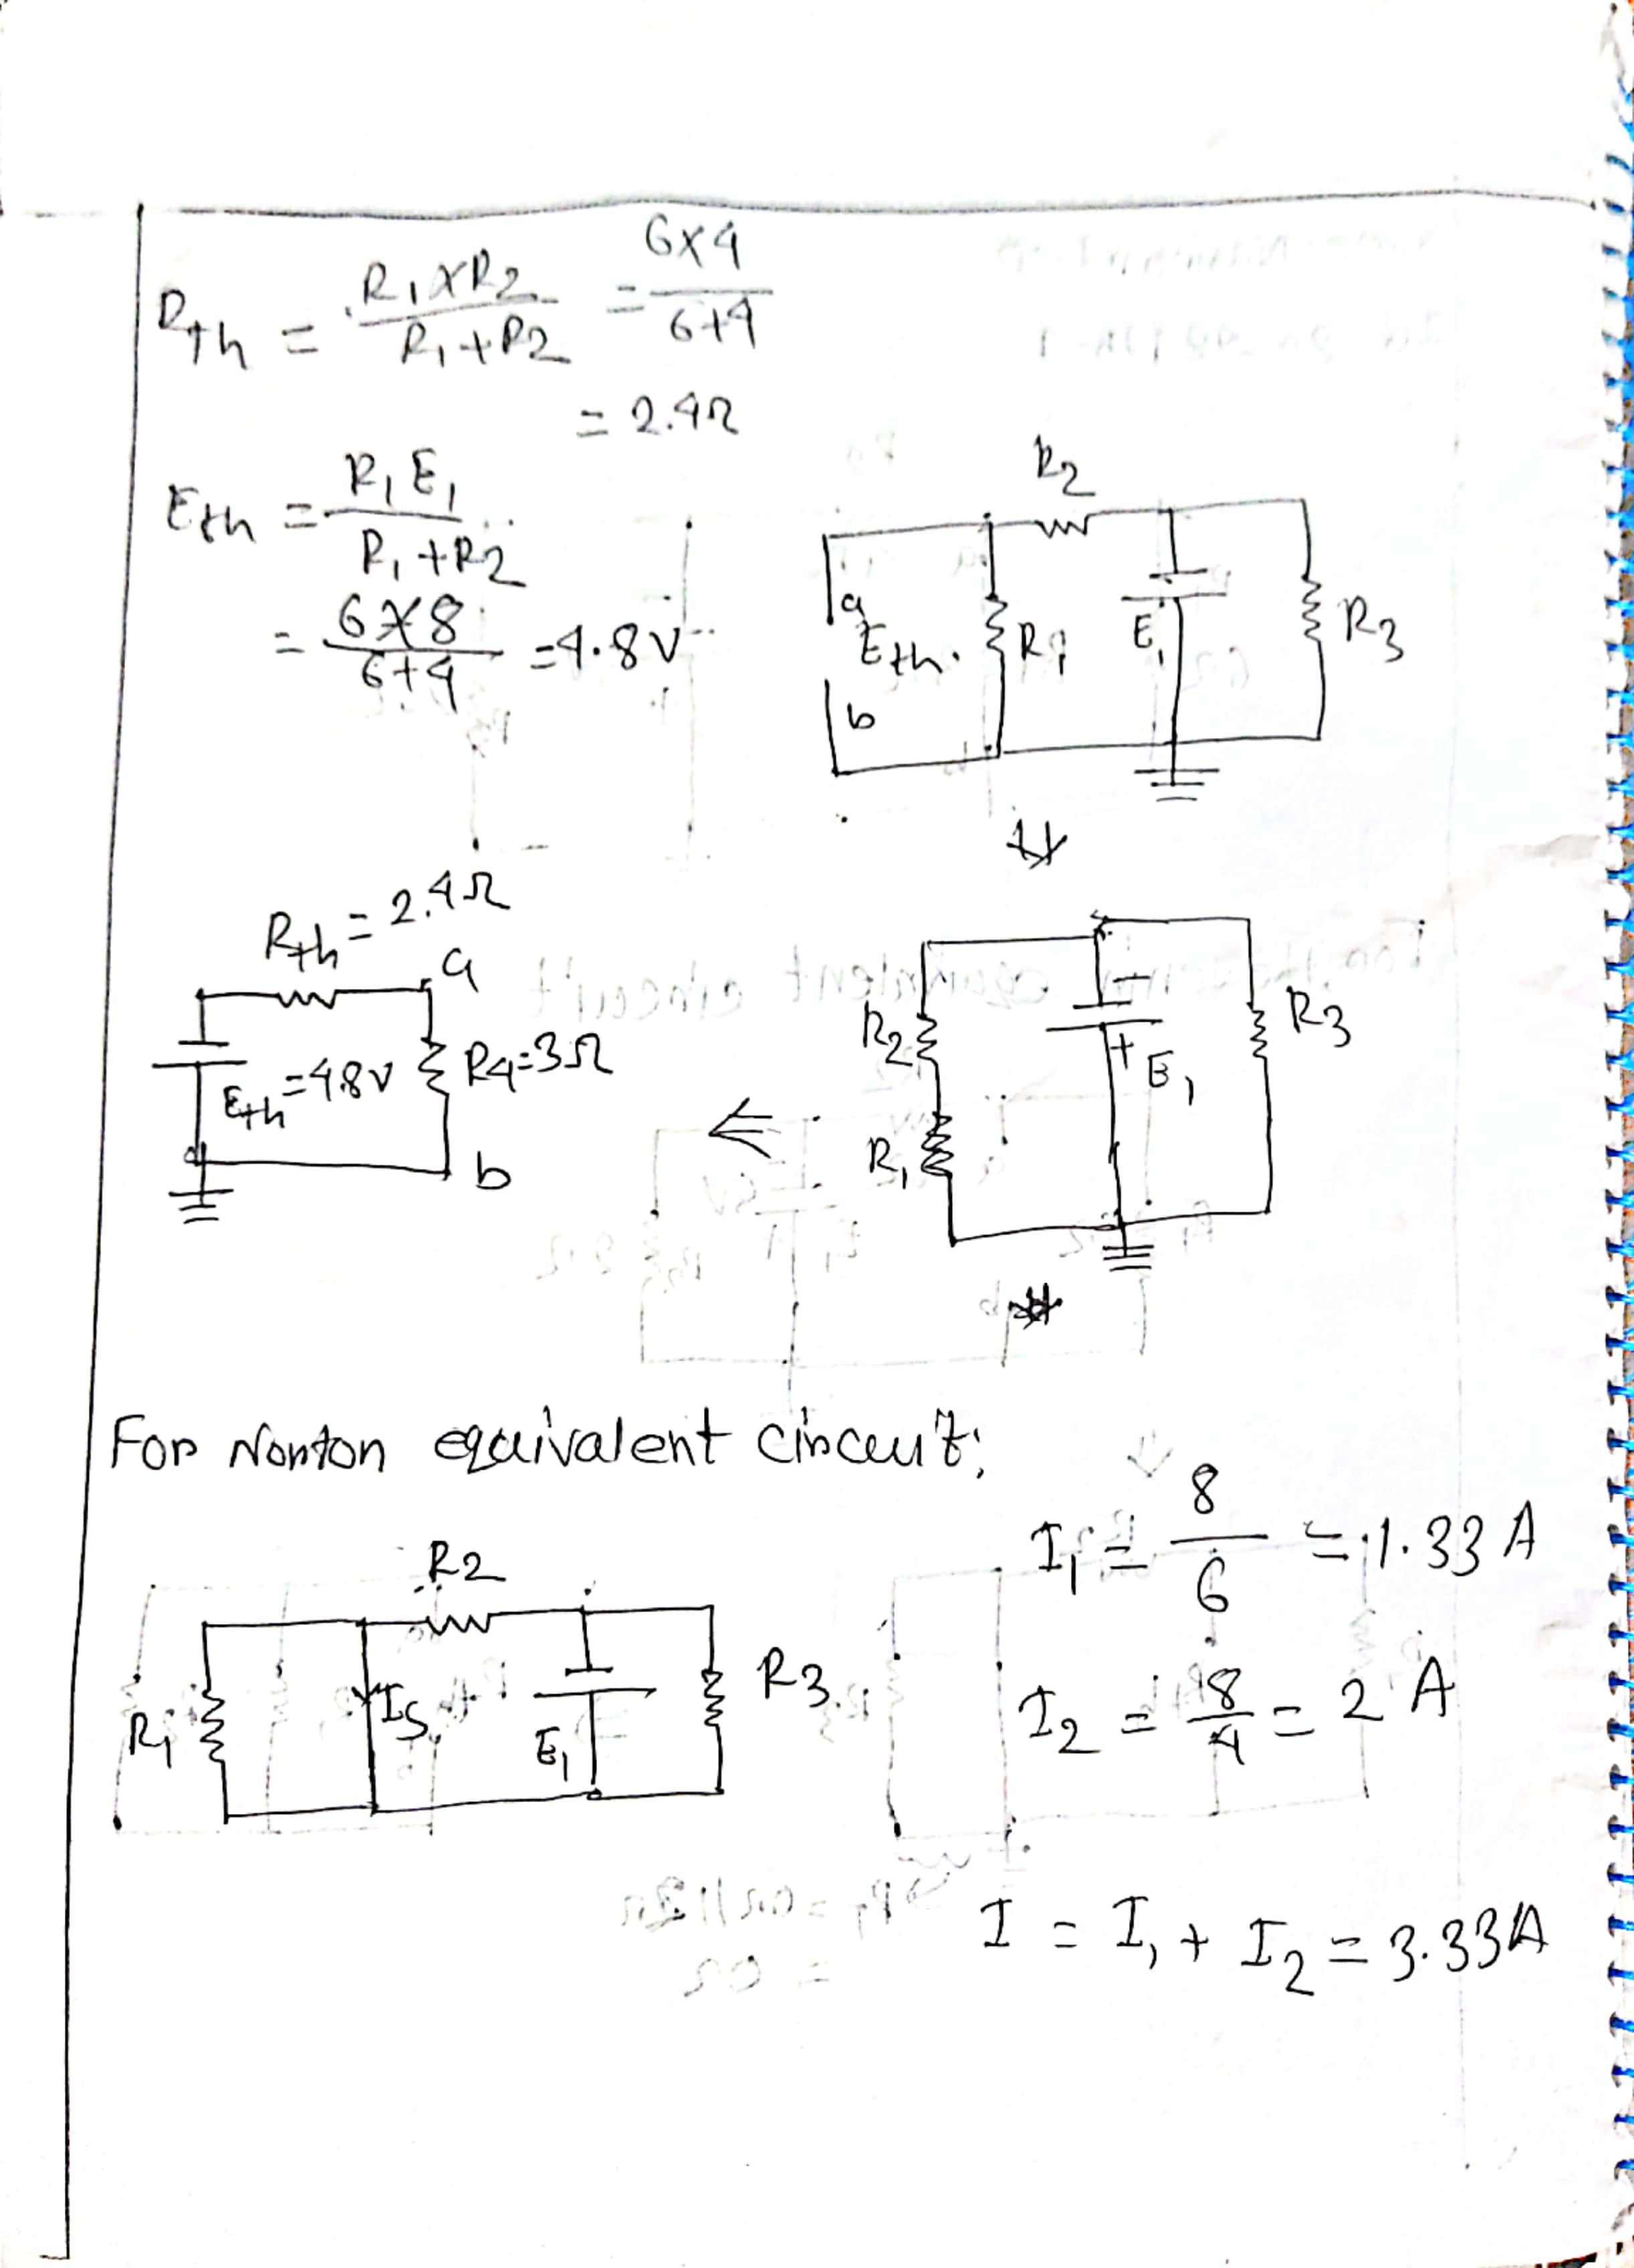 Rth = R1XR2 / R1+R2 = 6X4 / 6+4
= 2.4Ω
Eth = R1E1 / R1+R2
= 6X8 / 6+4 = 4.8V
R2
a
Eth.
R1
E1
R3
b
Rth = 2.4Ω
a
Eth = 4.8V
R4=3Ω
b
R2
R1
+
E1
R3
For Nonton equivalent circuit:
R2
R1
Is
E1
R3
I1 = 8 / 6 = 1.33 A
I2 = 8 / 4 = 2 A
I = I1 + I2 = 3.33A